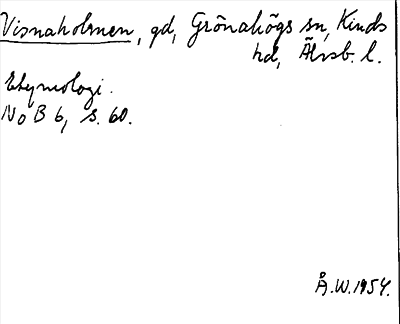 Visnaholmen, gd, Grönahögs sn, Kinds
hd, Älvsb. l.
Etymologi.
NoB 6, s. 60.
Å.W. 1954.